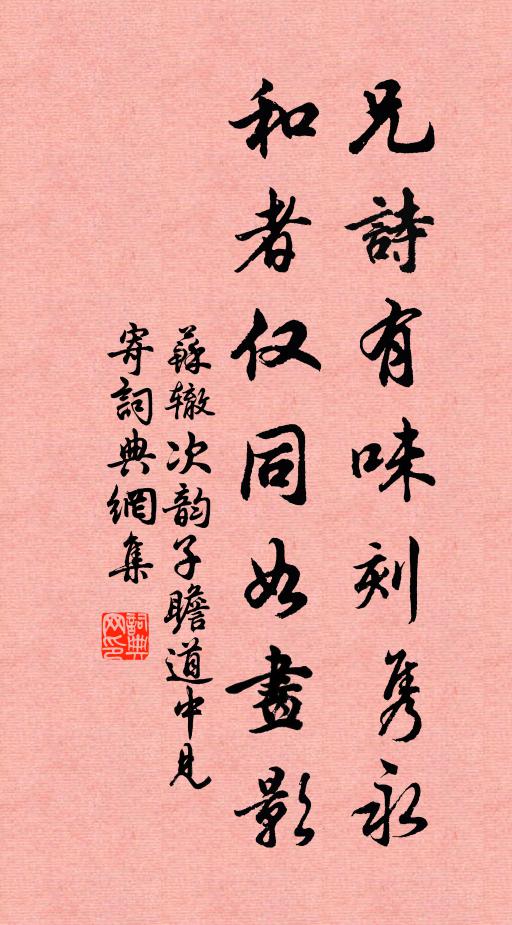 兄詩有味刻隽永
和者仅同如畫影
蘇辙次韵子瞻道中見
寄詞典網集
詞典网印